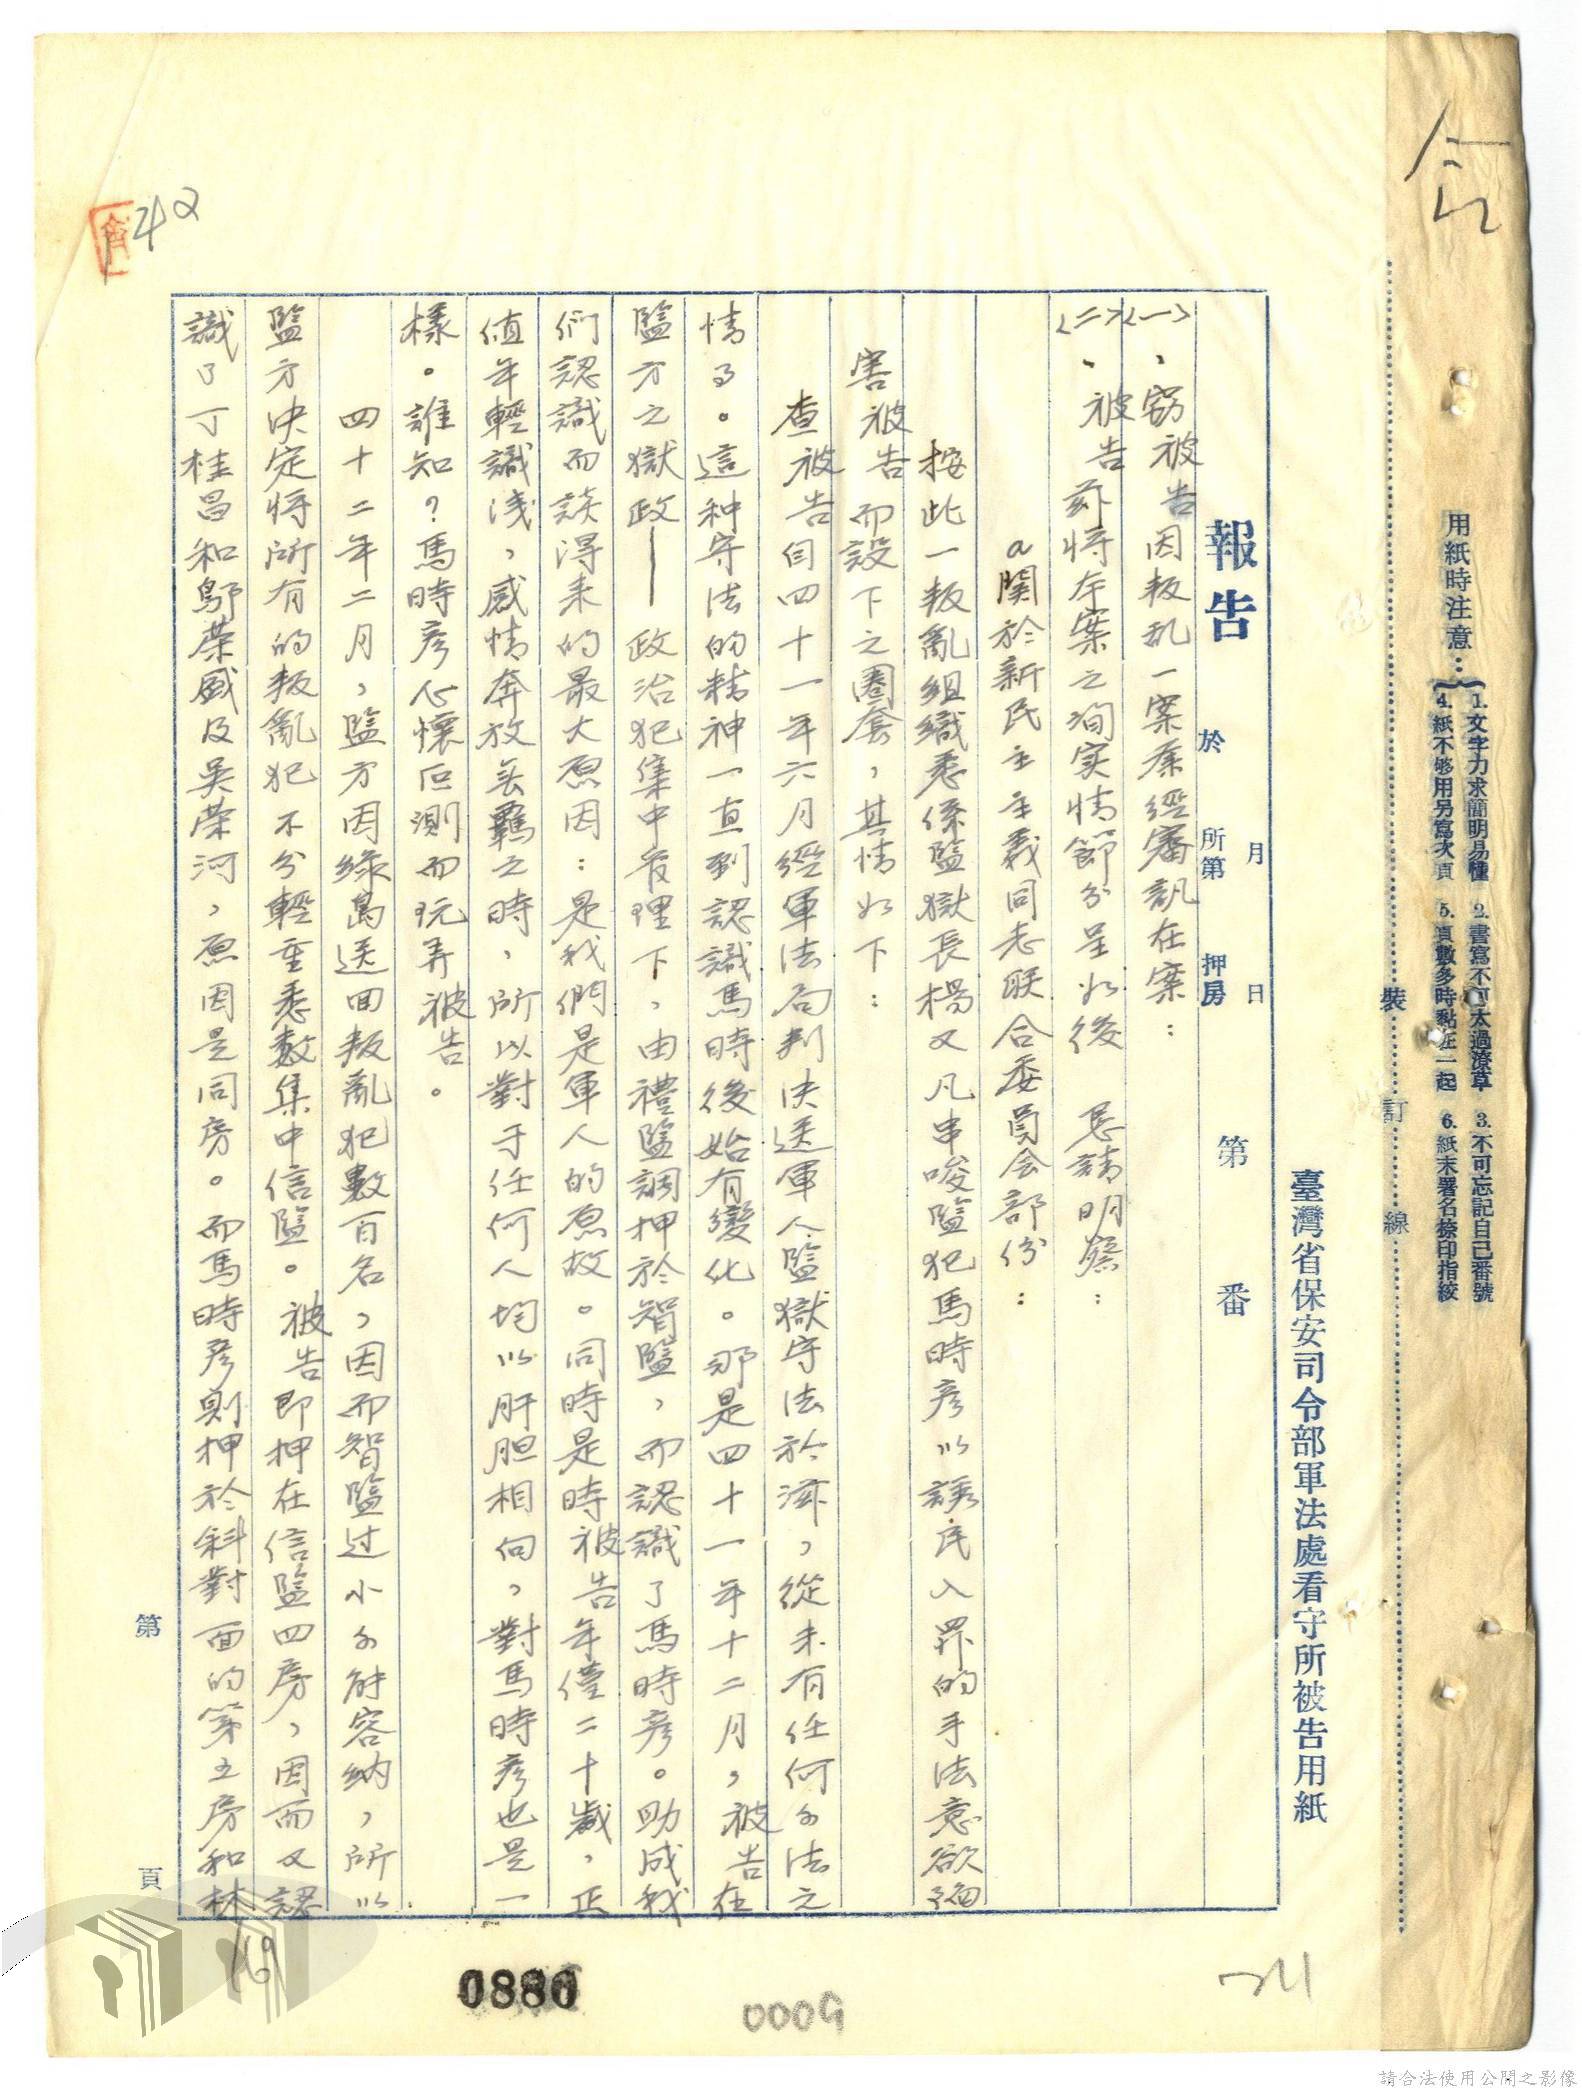 用紙時注意：
1. 文字力求簡明易種 2. 書寫不可太過潦草 3. 不可忘記自己番號
4. 紙不够用另寫次頁 5. 頁數多時黏在一起 6. 紙末署名捺印指紋
裝訂線
臺灣省保安司令部軍法處看守所被告用紙
報告 於 月 日 所第 押房 第 番
<一>、竊被告因叛乱一案奉經審訊在案：
<二>、被告茲將本案之洵实情節分呈如後 恳請明察：
a関於新民主主義同志联合委員会部份：
按此一叛亂組織悉係監獄長楊又凡串唆監犯馬時彦以誘民入罪的手法意欲殉
害被告而設下之圈套，其情如下：
查被告自四十一年六月經軍法局判決送軍人監獄守法於滋，從未有任何不法之
情事。這种守法的精神一直到認識馬時後始有變化。那是四十一年十二月，被告在
監方之獄政——政治犯集中管理下，由禮監調押於智監，而認識了馬時彦。助成我
們認識而談得来的最大原因：是我們是軍人的原故。同時是時被告年僅二十歲，正
值年輕識淺，感情奔放无羈之時，所以對于任何人均以肝胆相向，對馬時彦也是一
樣。誰知？馬時彦心懷叵測而玩弄被告。
四十二年二月，監方因綠島送回叛亂犯數百名，因而智監过小不能容納，所以
監方決定將所有的叛亂犯不分輕重悉數集中信監。被告即押在信監四房，因而又認
識了丁桂昌和鄔荣盛及吴荣河，原因是同房。而馬時彦則押於斜對面的第五房和林
第 頁
142
169
0880
0009
請合法使用公開之影像